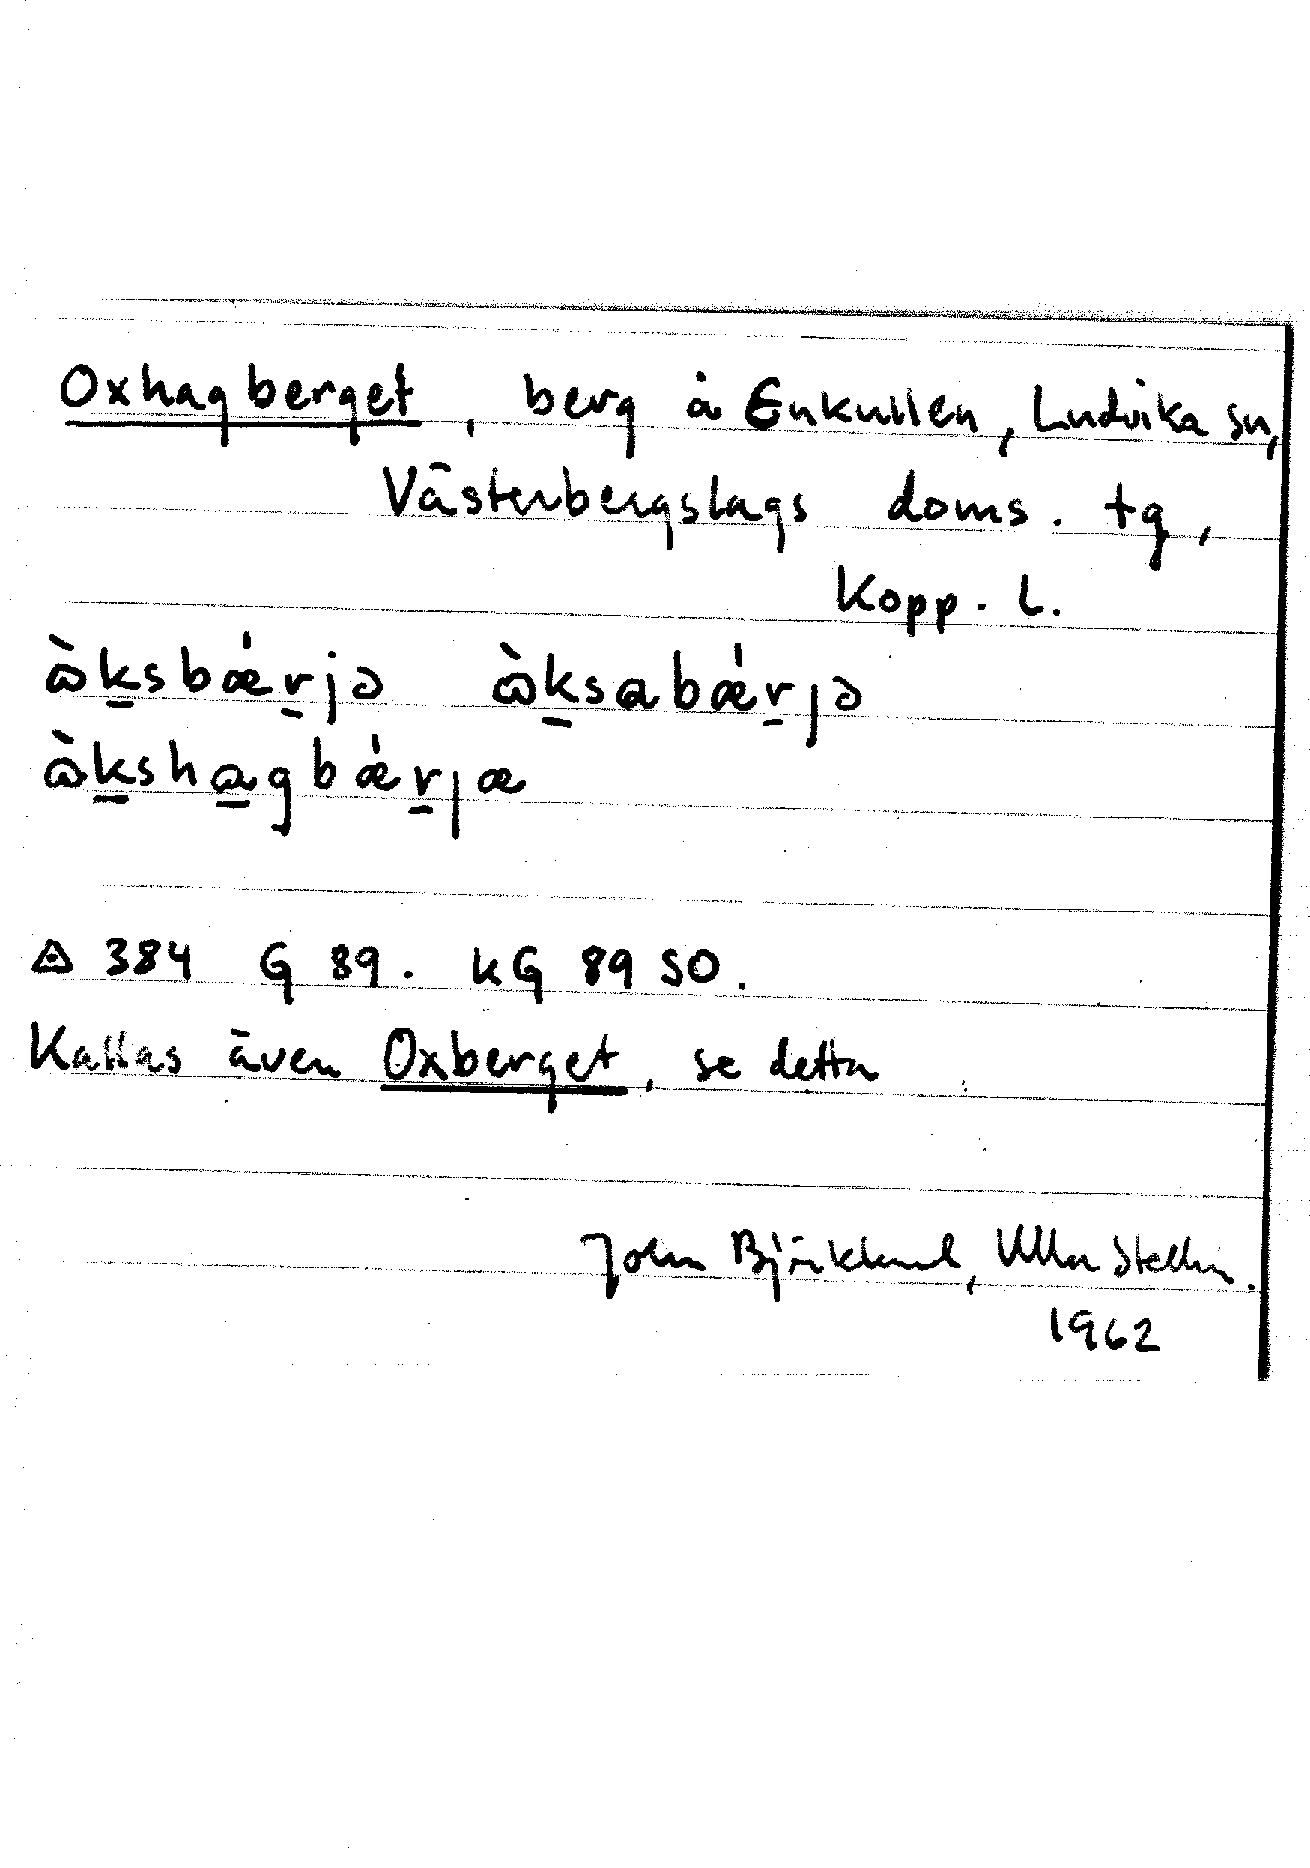 Oxhagberget, berg å Enkullen, Ludvika sn,
Västerbergslags doms. tg,
Kopp. l.
ὼksbǽrjə ὼksabǽrjə
ὼkshagbǽrjæ
◬ 384 G 89. kG 89 SO.
Kallas även Oxberget, se detta
John Björklund, Ulla Stellin.
1962